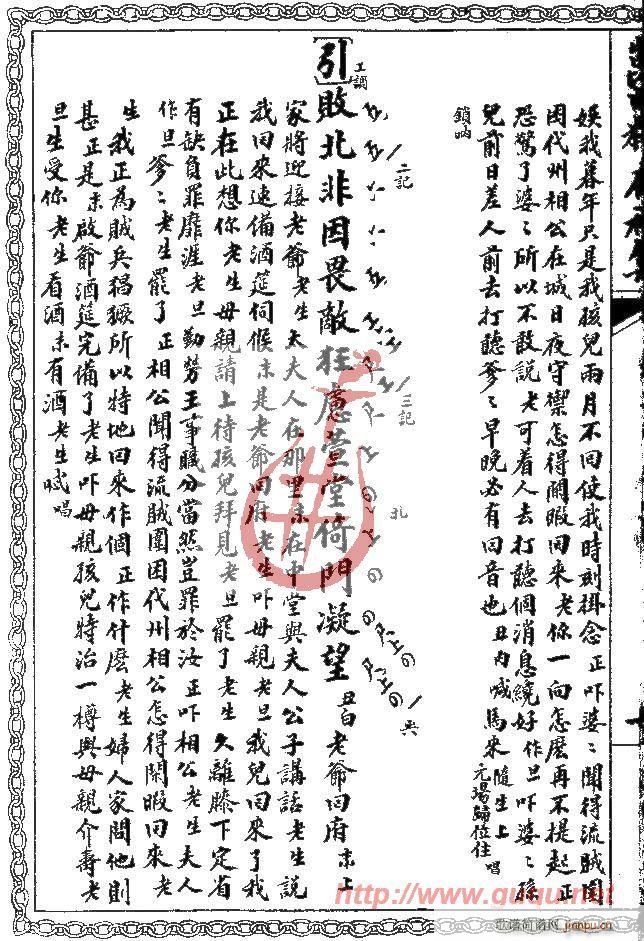 娱我暮年只是我孩兒兩月不回使我時刻掛念正吓婆〻聞得流賊圍
困代州相公在城日夜守禦怎得閒暇回來老你一向怎麽再不提起正
恐驚了婆〻所以不敢說老可着人去打聽個消息纔好作旦吓婆〻孫
兒前日差人前去打聽爹〻早晚必有回音也丑内喊馬來隨生上
元場歸位住唱
鎖呐
引
工調
敗北非因畏敵狂慮萱堂倚門凝望丑白老爺回府末上
二記
三記
家將迎接老爺老生太夫人在那里末在中堂與夫人公子講話老生說
我回來速備酒筵伺候末是老爺回府老生吓母親老旦我兒回來了我
正在此想你老生母親請上待孩兒拜見老旦罷了老生久離膝下定省
有缺負罪靡涯老旦勤劳王事職分當然豈罪於汝正吓相公老生夫人
作旦爹〻老生罷了正相公聞得流賊圍困代州相公怎得閒暇回來老
生我正為賊兵猖獗所以特地回來作個正作什麽老生婦人家問他則
甚正是末啟爺酒筵完備了老生吓母親孩兒特治一樽與母親介壽老
旦生受你老生看酒末有酒老生唱
http://www.ququ.net
歌谱简谱网 jianpu.cn